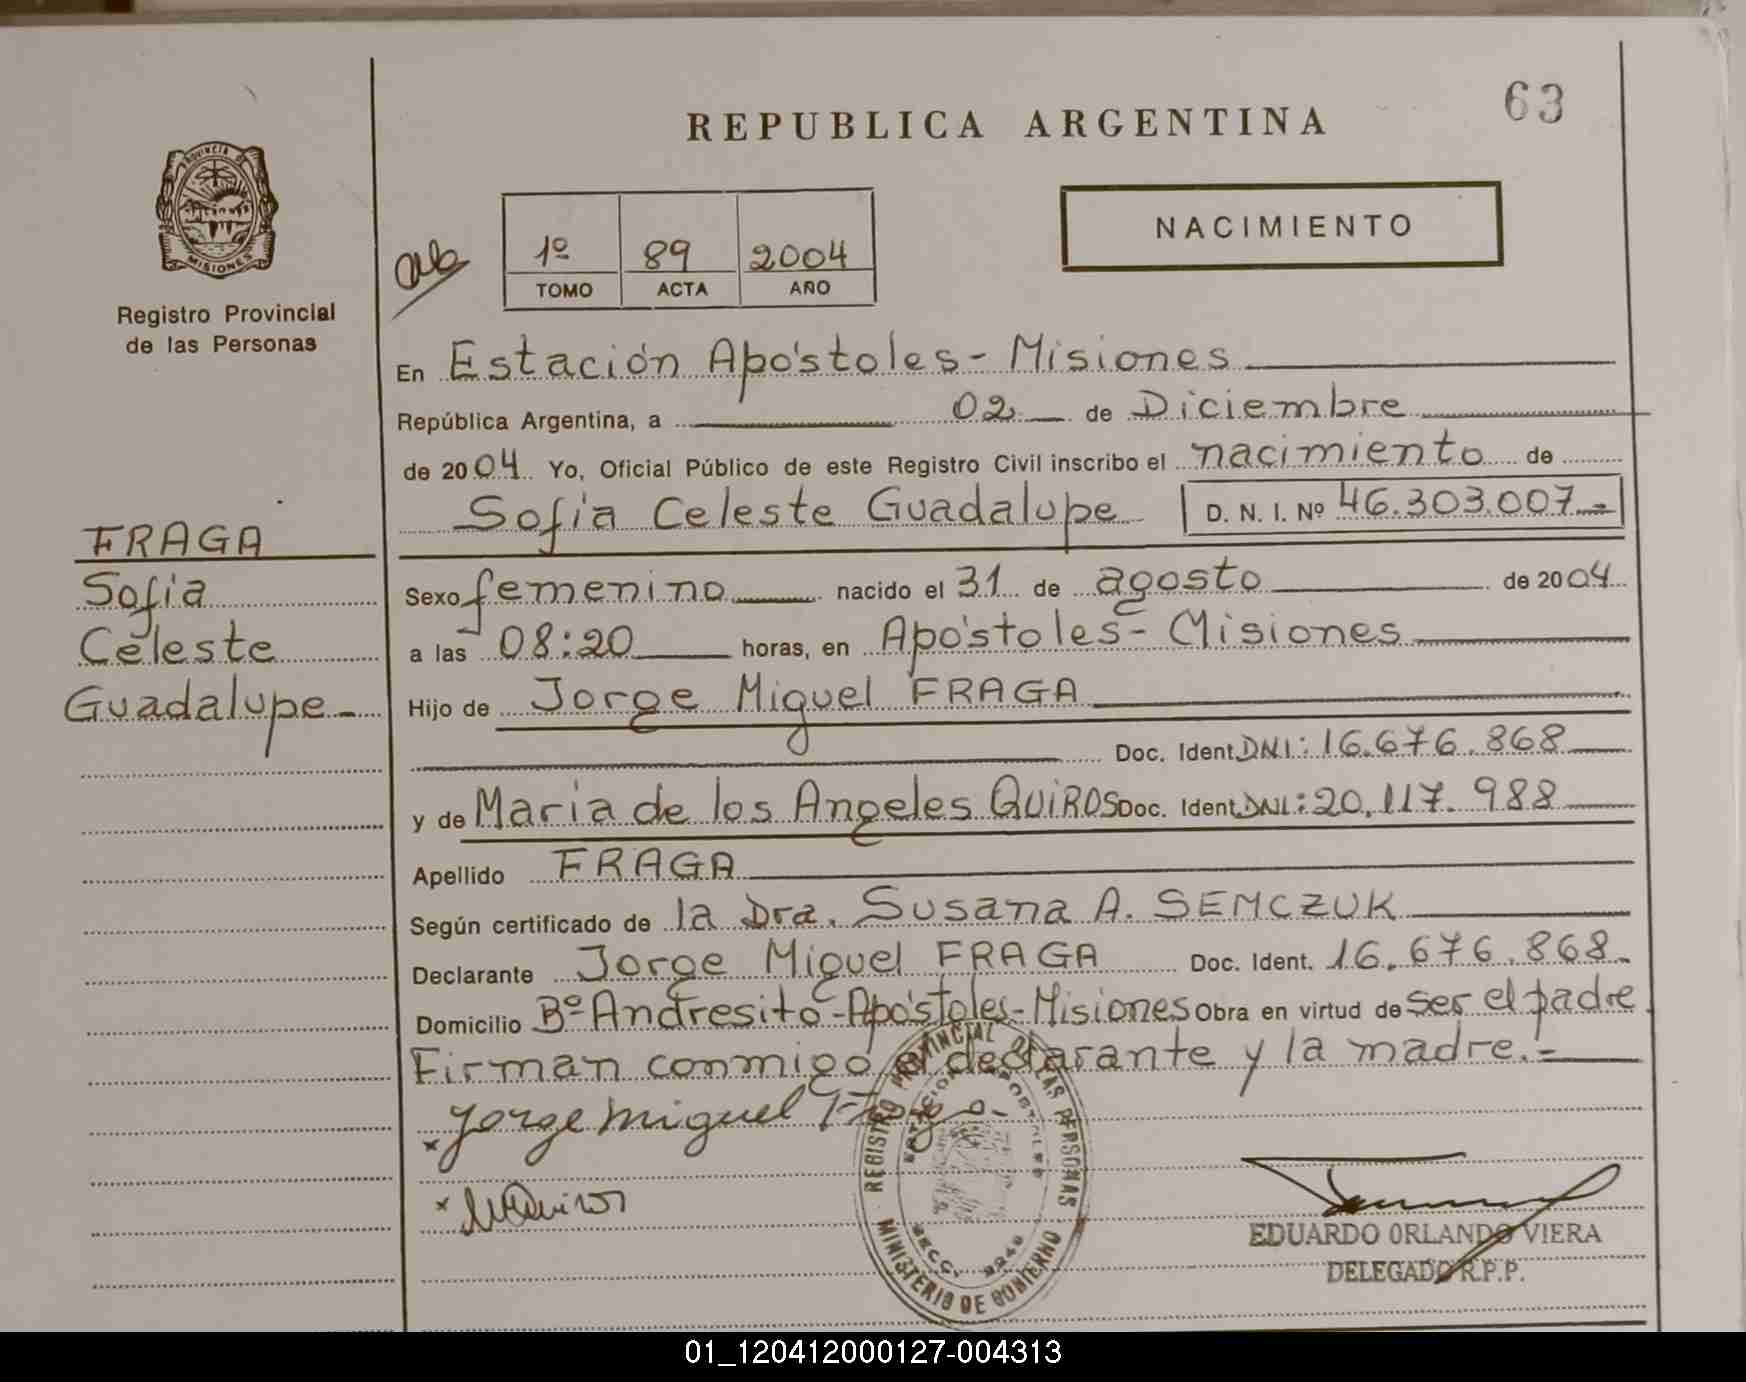 63
REPUBLICA ARGENTINA
PROVINCIA DE
MISIONES
Registro Provincial
de las Personas
1º 89 2004
TOMO ACTA AÑO
NACIMIENTO
En Estación Apóstoles - Misiones
República Argentina, a 02 de Diciembre
de 2004 Yo, Oficial Público de este Registro Civil inscribo el nacimiento de
Sofia Celeste Guadalupe D. N. I. Nº 46.303.007.-
FRAGA
Sofia
Celeste
Guadalupe -
Sexo femenino nacido el 31 de agosto de 2004
a las 08:20 horas, en Apóstoles - Misiones
Hijo de Jorge Miguel FRAGA
Doc. Ident. DNI: 16.676.868
y de Maria de los Angeles QUIROS Doc. Ident. DNI: 20.117.988
Apellido FRAGA
Según certificado de la Dra. Susana A. SEMCZUK
Declarante Jorge Miguel FRAGA Doc. Ident. 16.676.868.
Domicilio Bº Andresito - Apóstoles - Misiones Obra en virtud de ser el padre.
Firman conmigo el declarante y la madre.=
x Jorge Miguel Fraga
x MQuiros
REGISTRO PROVINCIAL DE LAS PERSONAS
MINISTERIO DE GOBIERNO
ESTACION APOSTOLES
EDUARDO ORLANDO VIERA
DELEGADO R.P.P.
01_120412000127-004313